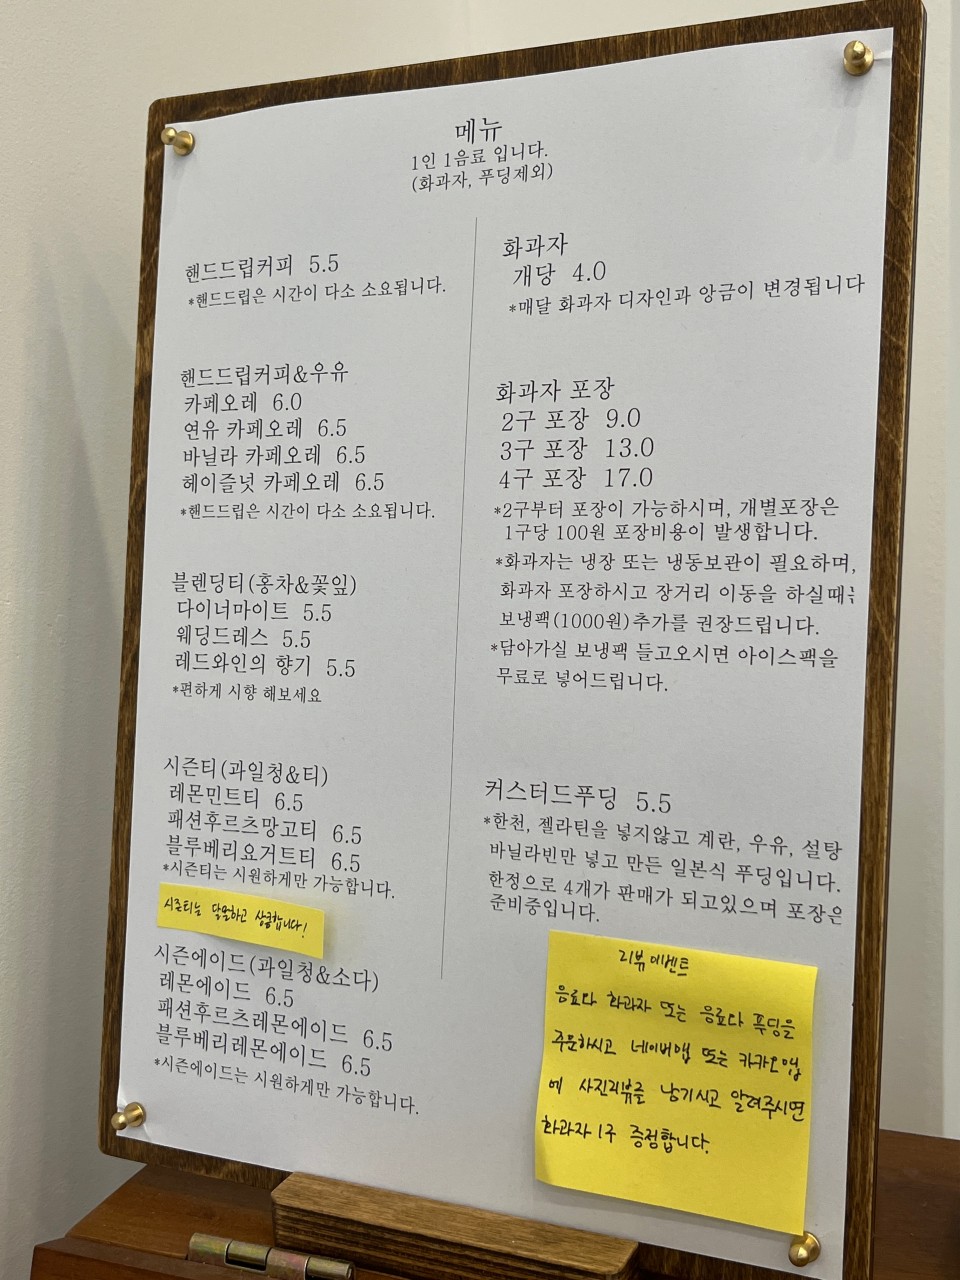 메뉴
1인 1음료 입니다.
(화과자, 푸딩제외)
핸드드립커피 5.5
*핸드드립은 시간이 다소 소요됩니다.
핸드드립커피&우유
카페오레 6.0
연유 카페오레 6.5
바닐라 카페오레 6.5
헤이즐넛 카페오레 6.5
*핸드드립은 시간이 다소 소요됩니다.
블렌딩티(홍차&꽃잎)
다이너마이트 5.5
웨딩드레스 5.5
레드와인의 향기 5.5
*편하게 시향 해보세요
시즌티(과일청&티)
레몬민트티 6.5
패션후르츠망고티 6.5
블루베리요거트티 6.5
*시즌티는 시원하게만 가능합니다.
시즌티는 달달하고 상큼합니다!
시즌에이드(과일청&소다)
레몬에이드 6.5
패션후르츠레몬에이드 6.5
블루베리레몬에이드 6.5
*시즌에이드는 시원하게만 가능합니다.
화과자
개당 4.0
*매달 화과자 디자인과 앙금이 변경됩니다
화과자 포장
2구 포장 9.0
3구 포장 13.0
4구 포장 17.0
*2구부터 포장이 가능하시며, 개별포장은
1구당 100원 포장비용이 발생합니다.
*화과자는 냉장 또는 냉동보관이 필요하며,
화과자 포장하시고 장거리 이동을 하실때는
보냉팩(1000원)추가를 권장드립니다.
*담아가실 보냉팩 들고오시면 아이스팩을
무료로 넣어드립니다.
커스터드푸딩 5.5
*한천, 젤라틴을 넣지않고 계란, 우유, 설탕
바닐라빈만 넣고 만든 일본식 푸딩입니다.
한정으로 4개가 판매가 되고있으며 포장은
준비중입니다.
리뷰이벤트
음료다 화과자 또는 음료다 푸딩을
주문하시고 네이버맵 또는 카카오맵
에 사진리뷰를 남기시고 알려주시면
화과자 1구 증정합니다.